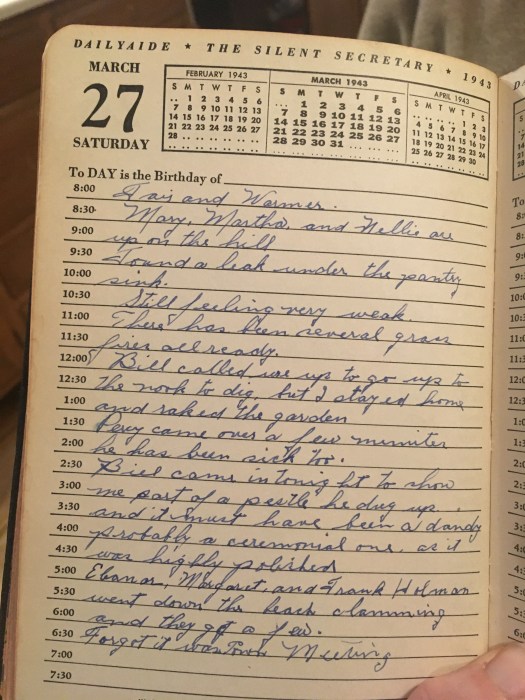 DAILYAIDE ★ THE SILENT SECRETARY ★ 1943
MARCH
27
SATURDAY
FEBRUARY 1943
S M T W T F S
.. 1 2 3 4 5 6
7 8 9 10 11 12 13
14 15 16 17 18 19 20
21 22 23 24 25 26 27
28 .. .. .. .. .. ..
MARCH 1943
S M T W T F S
... 1 2 3 4 5 6
7 8 9 10 11 12 13
14 15 16 17 18 19 20
21 22 23 24 25 26 27
28 29 30 31 ... ... ...
APRIL 1943
S M T W T F S
.. .. .. .. 1 2 3
4 5 6 7 8 9 10
11 12 13 14 15 16 17
18 19 20 21 22 23 24
25 26 27 28 29 30 ..
To DAY is the Birthday of
8:00 Fair and Warmer.
8:30 Mary, Martha, and Nellie are
9:00 up on the hill
9:30 Found a leak under the pantry
10:00 sink.
10:30 Still feeling very weak.
11:00 There has been several grass
11:30 fires allready.
12:00 Bill called use up to go up to
12:30 the nook to dig, but I stayed home
1:00 and raked the garden
1:30 Percy came over a few muniter
2:00 he has been sick too.
2:30 Bill came in tonight to show
3:00 me part of a pestle he dug up.
3:30 and it must have been a dandy
4:00 probably a ceremonial one, as it
4:30 was highly polished
5:00 Eleanor, Margaret, and Frank Holman
5:30 went down the beach clamming
6:00 and they got a few.
6:30 Forgot it was Town Meeting
7:00
7:30